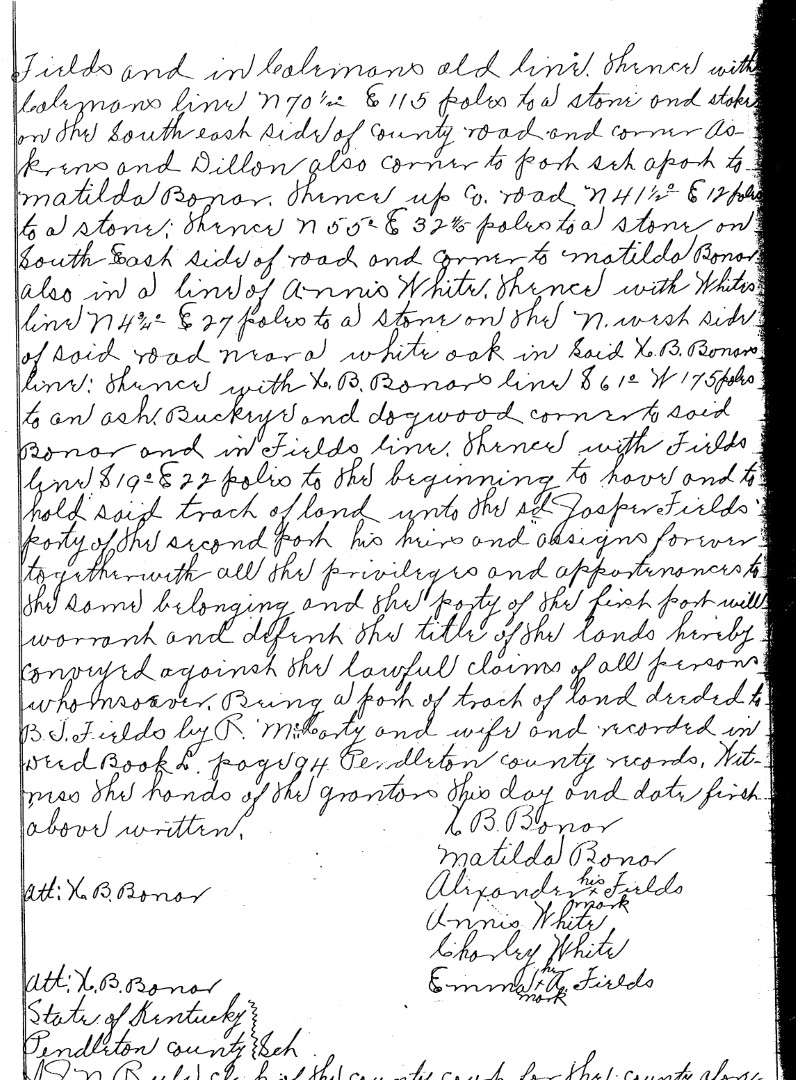 Fields and in Colemans old line. Thence with
Colemans line N 70 1/2º E 115 poles to a stone and stake
on the South east side of county road and corner As-
krens and Dillon also corner to part set apart to
Matilda Bonar. Thence up Co. road N 41 1/2º E 12 poles
to a stone; Thence N 55º E 32 4/5 poles to a stone on
South East side of road and corner to Matilda Bonar
also in a line of Annis White. Thence with Whites
line N 4 3/4º E 27 poles to a stone on the N. west side
of said road near a white oak in said X. B. Bonars
line: Thence with X. B. Bonars line S 61º W 175 poles
to an ash, Buckeye and dogwood corner to said
Bonar and in Fields line. Thence with Fields
line S 19º E 22 poles to the beginning to have and to
hold said tract of land unto the sd Jasper Fields
party of the second part his heirs and assigns forever
together with all the privileges and appertenances to
the same belonging and the party of the first part will
warrant and defent the title of the lands hereby
conveyed against the lawful claims of all persons
whomsoever. Being a part of tract of land deeded to
B. J. Fields by R. McCarty and wife and recorded in
Deed Book L. page 94 Pendleton county records. Wit-
ness the hands of the grantors this day and date first
above written.
X B. Bonar
Matilda Bonar
Att: X. B. Bonar
Alexander his x mark Fields
Annis White
Charley White
Att: X. B. Bonar
Emma her + mark Fields
State of Kentucky
Pendleton county Sct.
clerk of the county court for the county